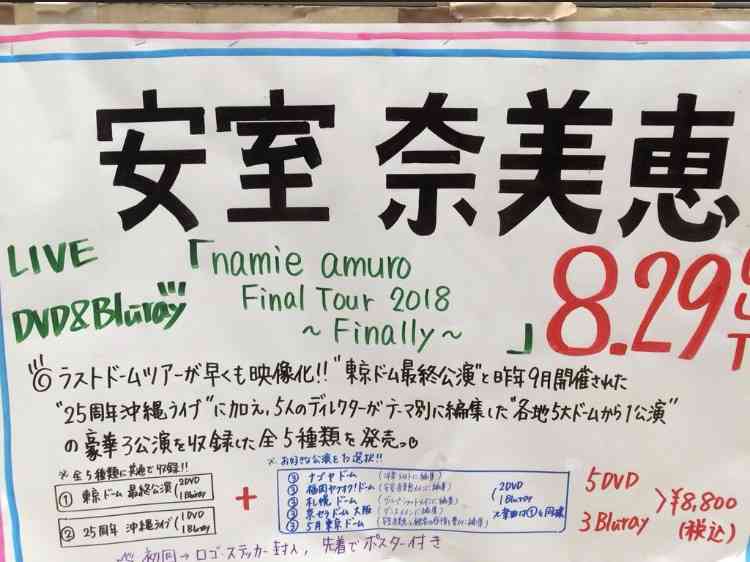 安室 奈美恵
LIVE
DVD&Bluray
「namie amuro
Final Tour 2018
~Finally~」
8.29
ラストドームツアーが早くも映像化!! "東京ドーム最終公演"と昨年9月開催された
"25周年沖縄ライブ"に加え、5人のディレクターがテーマ別に編集した"各地5大ドームから1公演"
の豪華3公演を収録した全5種類を発売
※全5種類に共通で収録!!
① 東京ドーム 最終公演 (2DVD 1Bluray
② 25周年 沖縄ライブ (1DVD 1Bluray
+
※お好きな公演を1つ選択!!
③ ナゴヤドーム
③ 福岡ヤフオク!ドーム
③ 札幌ドーム
③ 京セラドーム大阪
③ 5月東京ドーム
2DVD
1Bluray
5DVD
3Bluray
>¥8,800
(税込)
初回→ロゴステッカー封入、先着でポスター付き